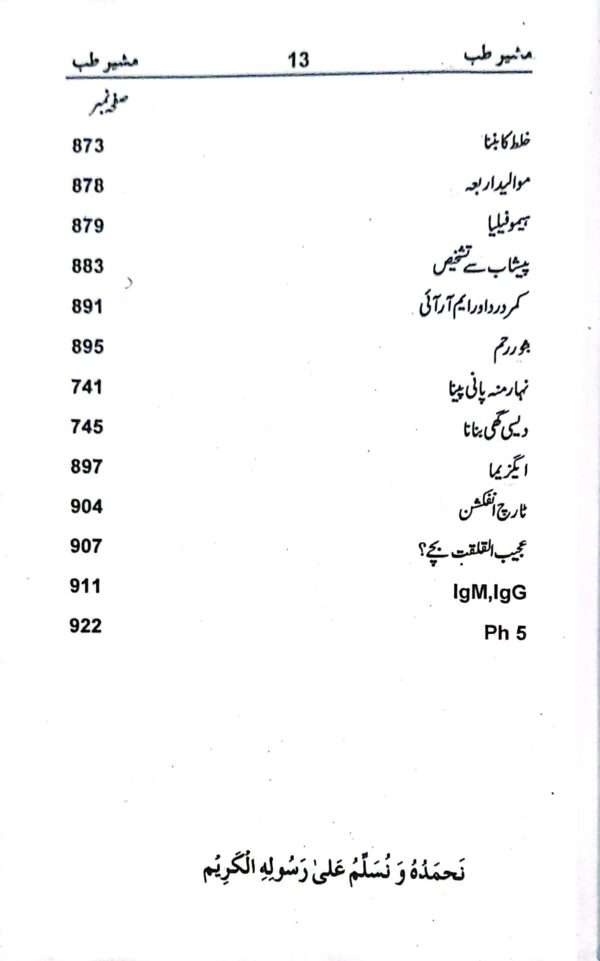 مشیر طب 13 مشیر طب
صفحہ نمبر
خلط کا بننا 873
موالید اربعہ 878
ہیموفیلیا 879
پیشاب سے تشخیص 883
کمر درد اور ایم آر آئی 891
بثور رحم 895
نہار منہ پانی پینا 741
دیسی گھی بنانا 745
ایگزیما 897
ٹارچ انفکشن 904
عجیب القلقت بچے؟ 907
IgM,IgG 911
Ph 5 922
نَحمَدُهُ وَ نُسَلِّمُ عَلىٰ رَسُولِهِ الْكَرِيُم